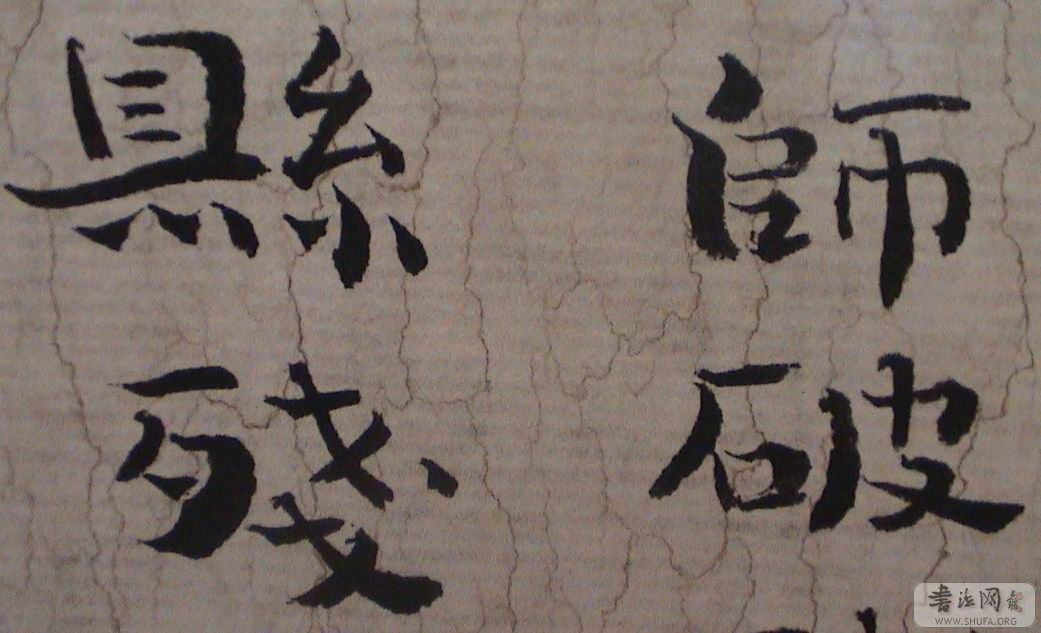 師破
縣殘
書法网
WWW.SHUFA.ORG